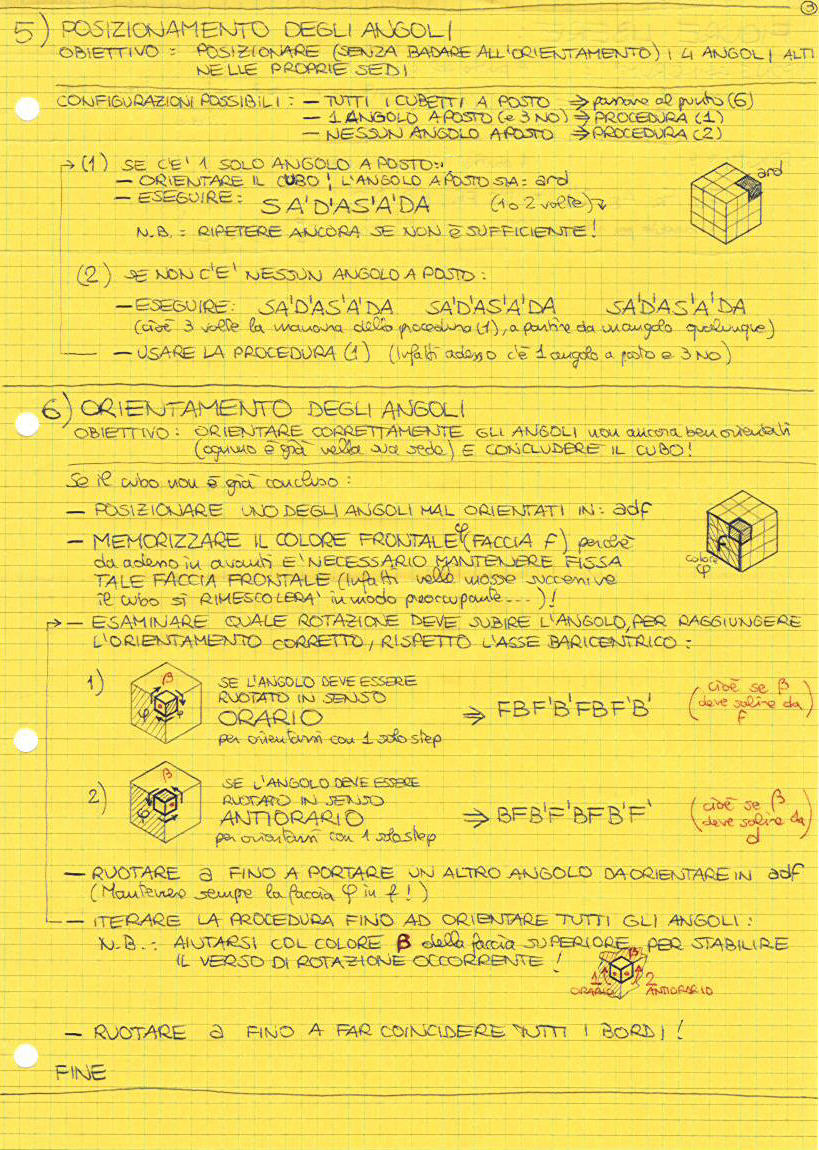 3
5) POSIZIONAMENTO DEGLI ANGOLI
OBIETTIVO : POSIZIONARE (SENZA BADARE ALL'ORIENTAMENTO) I 4 ANGOLI ALTI
NELLE PROPRIE SEDI
CONFIGURAZIONI POSSIBILI : — TUTTI I CUBETTI A POSTO ⇒ passare al punto (6)
— 1 ANGOLO A POSTO (e 3 NO) ⇒ PROCEDURA (1)
— NESSUN ANGOLO A POSTO ⇒ PROCEDURA (2)
→ (1) SE C'E' 1 SOLO ANGOLO A POSTO :
— ORIENTARE IL CUBO ¦ L'ANGOLO A POSTO STIA : ard
ard
— ESEGUIRE : SA'D'AS'A'DA (1 o 2 volte)
N.B. : RIPETERE ANCORA SE NON È SUFFICIENTE !
(2) SE NON C'E' NESSUN ANGOLO A POSTO :
— ESEGUIRE : SA'D'AS'A'DA SA'D'AS'A'DA SA'D'AS'A'DA
(cioè 3 volte la manovra della procedura (1), a partire da un angolo qualunque)
— USARE LA PROCEDURA (1) (Infatti adesso c'è 1 angolo a posto e 3 NO)
6) ORIENTAMENTO DEGLI ANGOLI
OBIETTIVO : ORIENTARE CORRETTAMENTE GLI ANGOLI non ancora ben orientati
(ognuno è già nella sua sede) E CONCLUDERE IL CUBO !
Se il cubo non è già concluso :
— POSIZIONARE UNO DEGLI ANGOLI MAL ORIENTATI IN : adf
— MEMORIZZARE IL COLORE FRONTALE φ (FACCIA F) perché
F
colore
φ
da adesso in avanti E' NECESSARIO MANTENERE FISSA
TALE FACCIA FRONTALE (Infatti nelle mosse successive
il cubo si RIMESCOLERA' in modo preoccupante ...) !
→ — ESAMINARE QUALE ROTAZIONE DEVE SUBIRE L'ANGOLO, PER RAGGIUNGERE
L'ORIENTAMENTO CORRETTO, RISPETTO L'ASSE BARICENTRICO :
1) β φ SE L'ANGOLO DEVE ESSERE
RUOTATO IN SENSO
ORARIO ⇒ FBF'B'FBF'B' (cioè se β
deve salire da
F)
per orientarsi con 1 solo step
2) β φ SE L'ANGOLO DEVE ESSERE
RUOTATO IN SENSO
ANTIORARIO ⇒ BFB'F'BFB'F' (cioè se β
deve salire da
d)
per orientarsi con 1 solo step
— RUOTARE a FINO A PORTARE UN ALTRO ANGOLO DA ORIENTARE IN adf
(Mantenere sempre la faccia φ in f !)
— ITERARE LA PROCEDURA FINO AD ORIENTARE TUTTI GLI ANGOLI :
N.B. : AIUTARSI COL COLORE β della faccia SUPERIORE PER STABILIRE
IL VERSO DI ROTAZIONE OCCORRENTE !
β
1 2
ORARIO ANTIORARIO
— RUOTARE a FINO A FAR COINCIDERE TUTTI I BORDI !
FINE